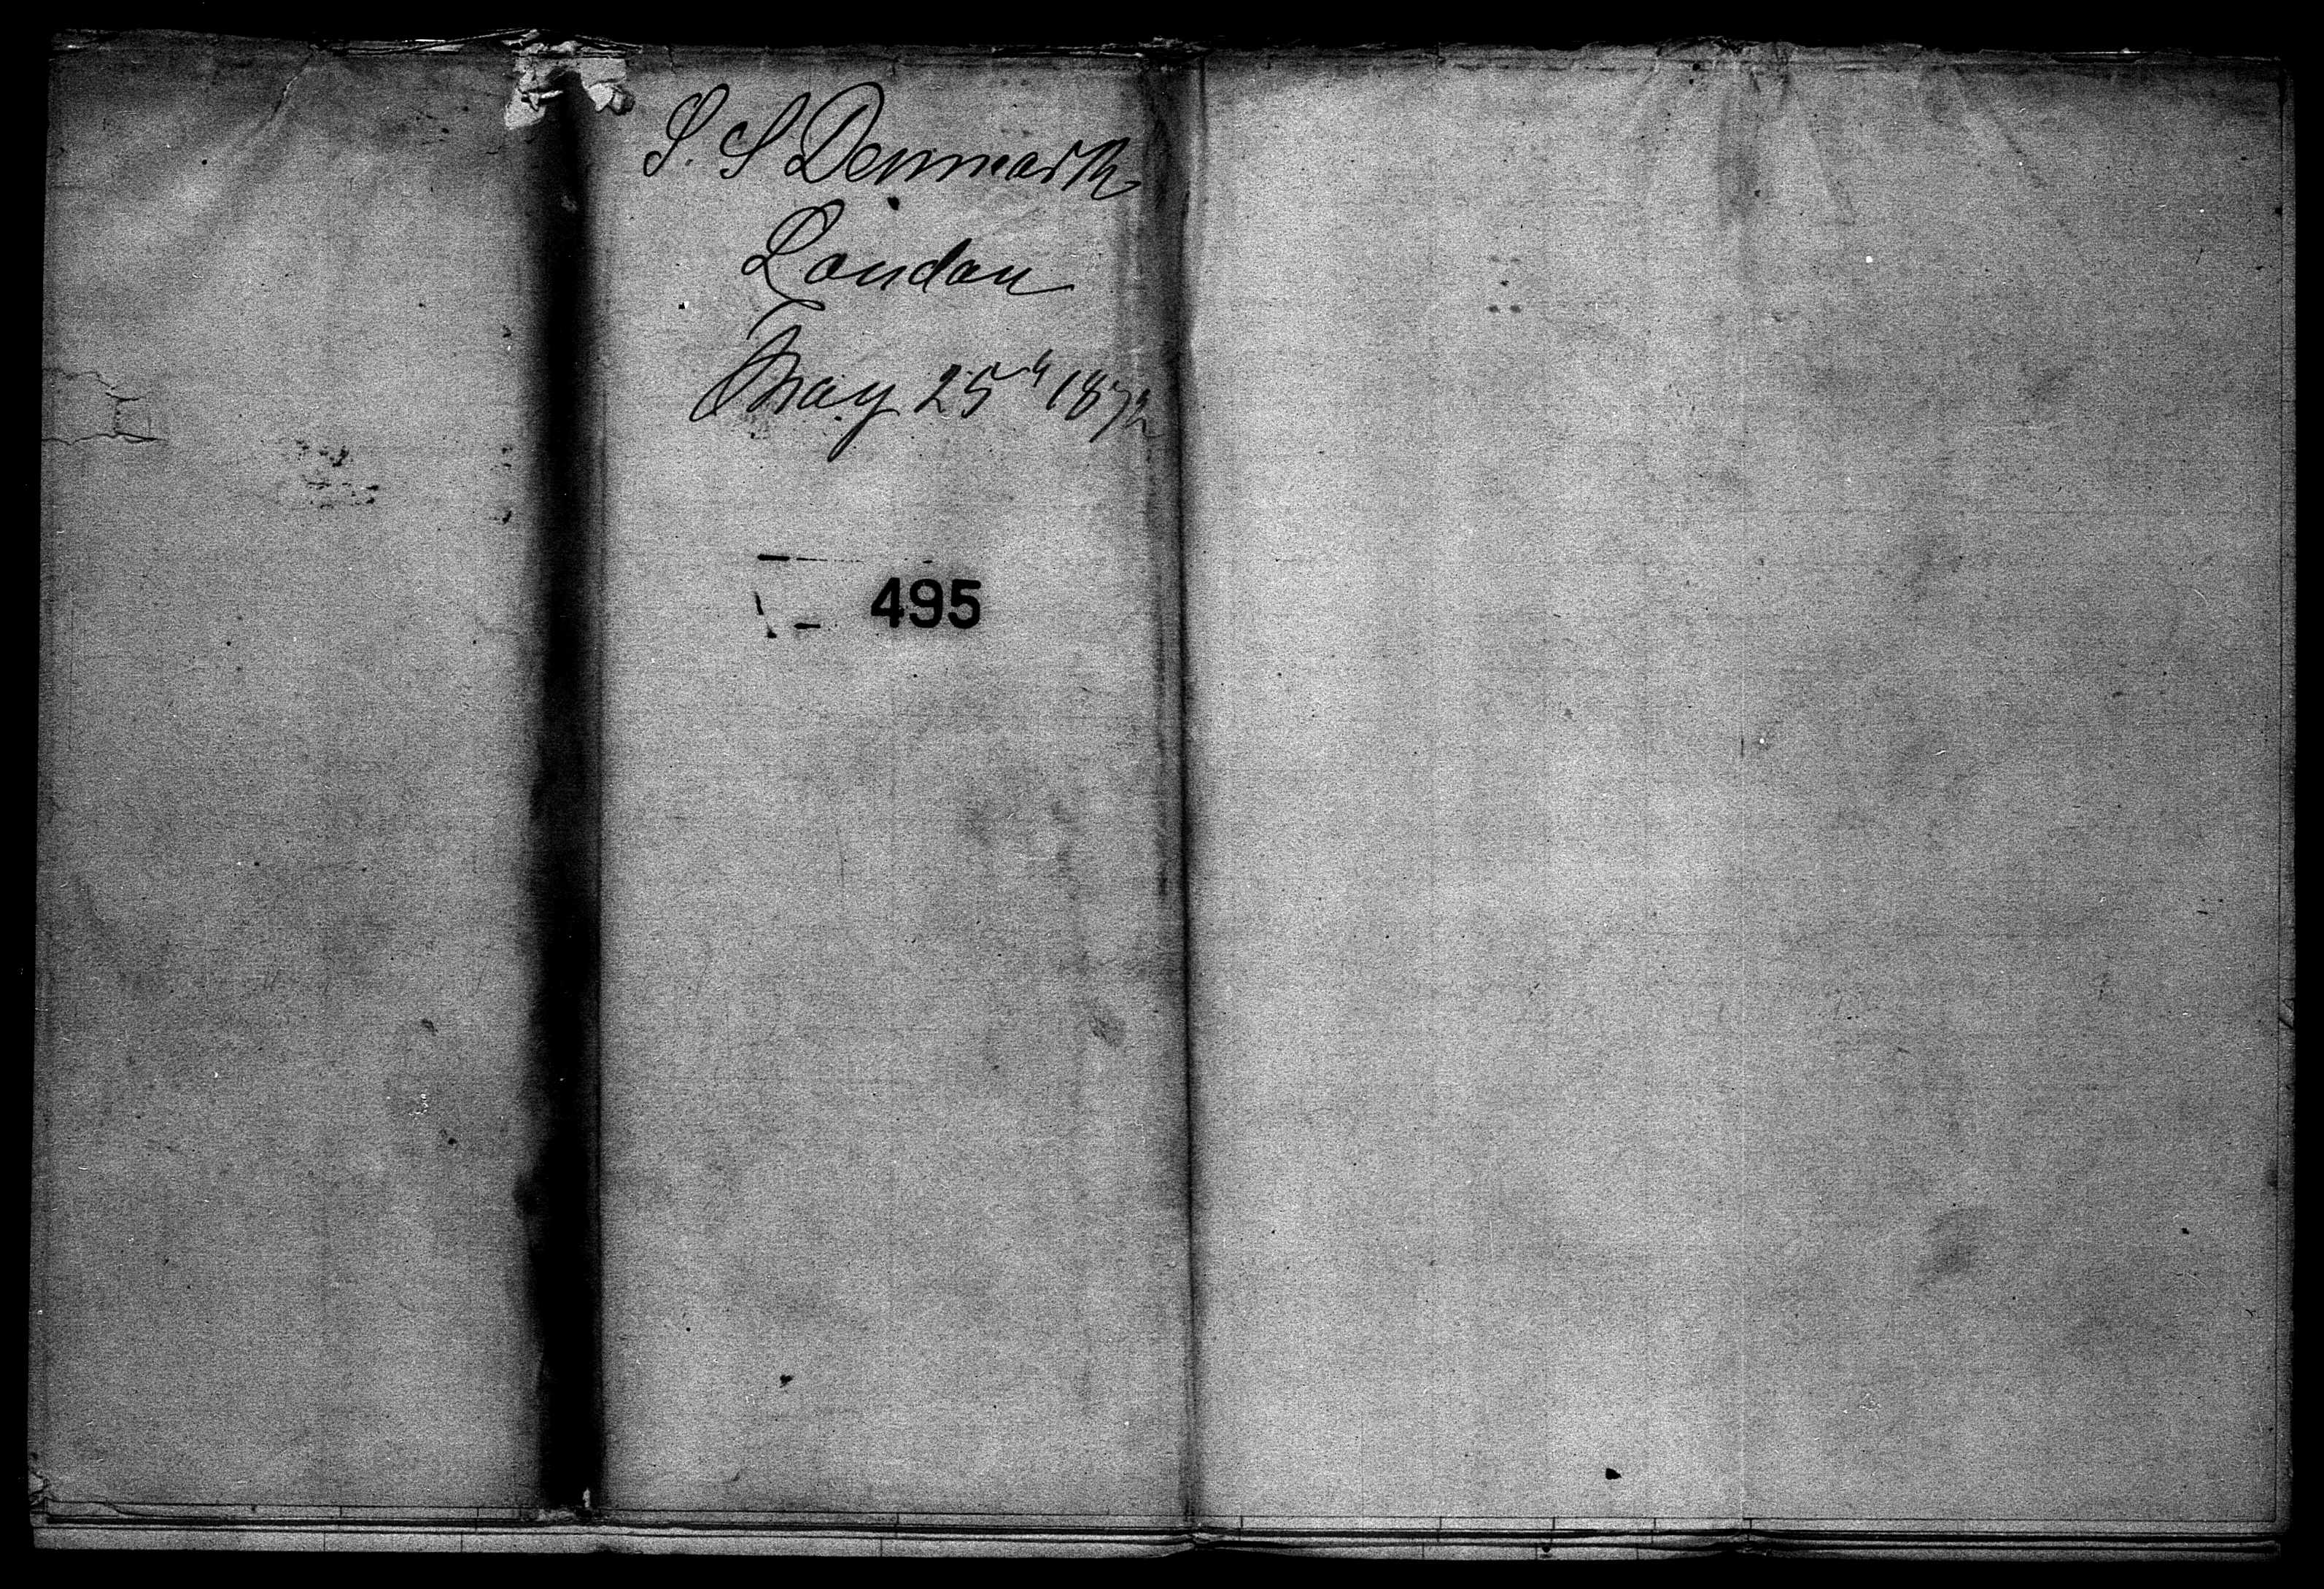 S. S Denmark
London
May 25th 1872
495